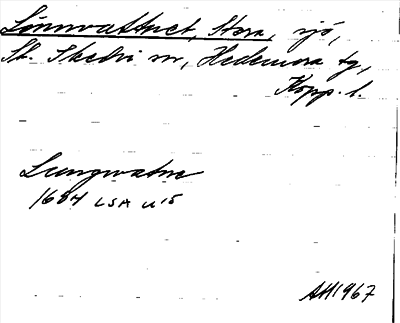 Lönnvattnet, Stora, sjö,
St. Skedvi sn, Hedemora tg,
Kopp. l.
Lungwatne
1684 LSA U 15
AH1967